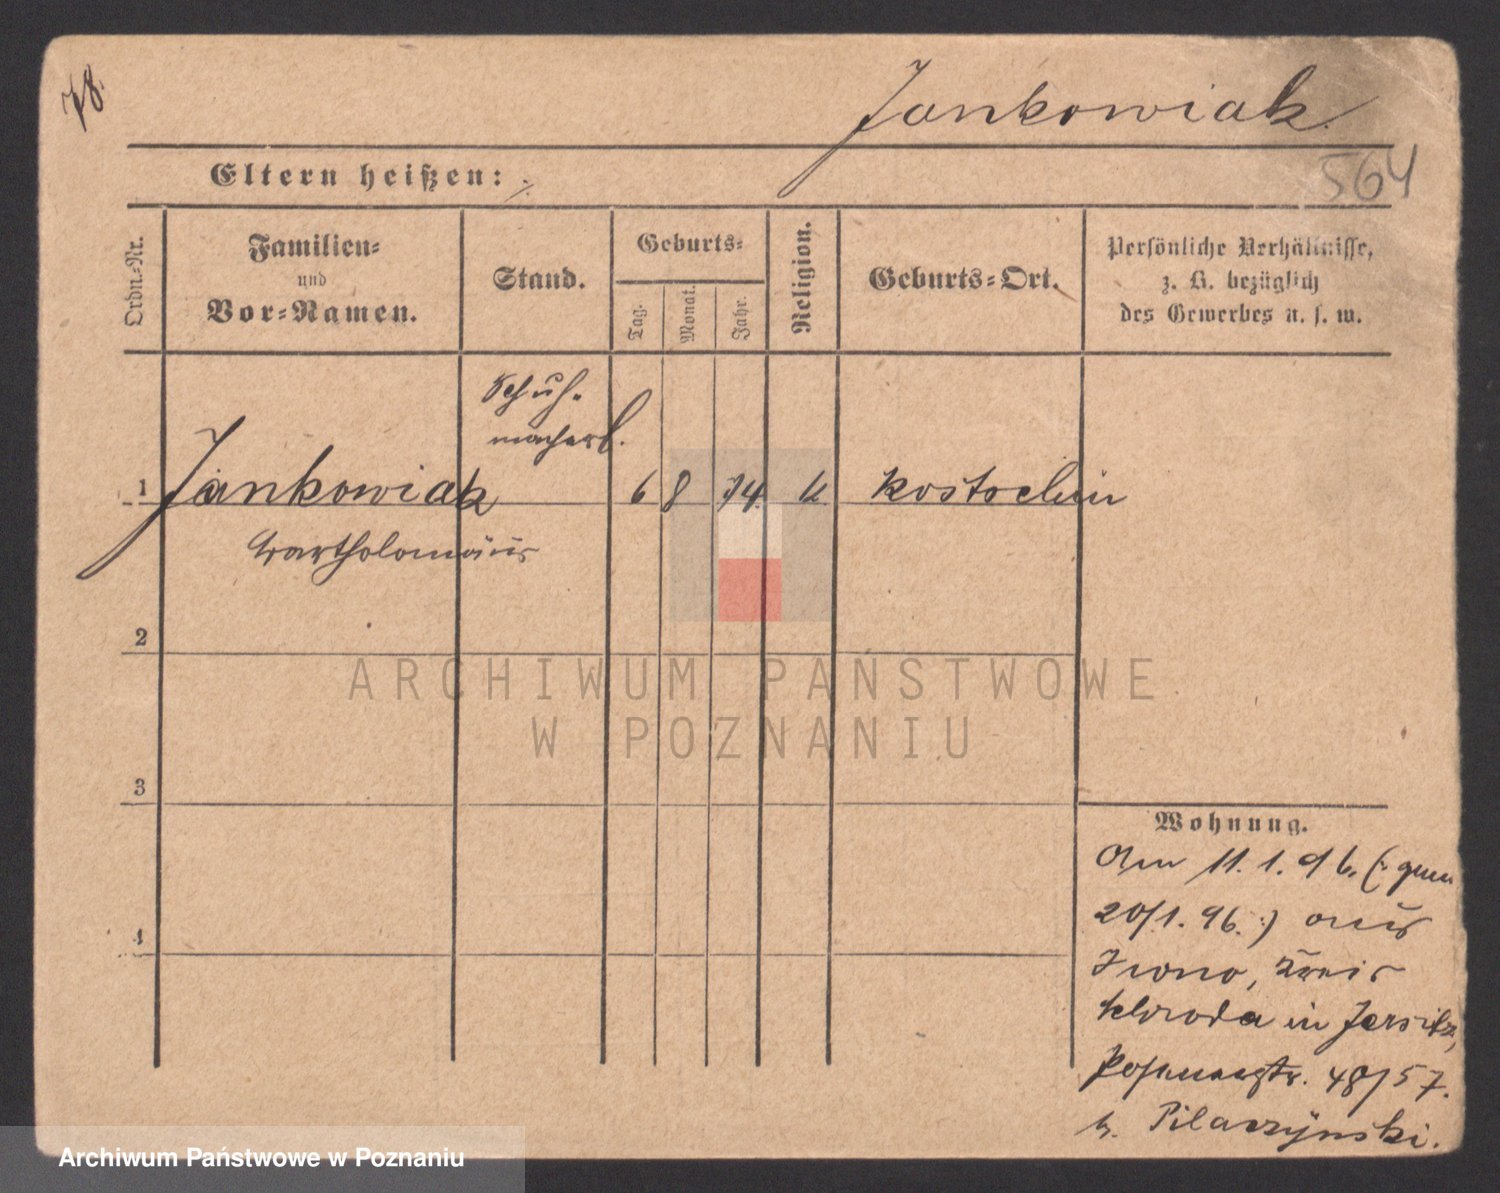 78.
Jankowiak.
564
Eltern heißen:
Ordn.-Nr.
Familien-
und
Vor-Namen.
Stand.
Geburts-
Tag.
Monat.
Jahr.
Religion.
Geburts-Ort.
Persönliche Verhältnisse,
z. B. bezüglich
des Gewerbes u. s. w.
Schuh-
macherl.
1 Jankowiak 6 8 74. k. Kostschin
Bartholomäus
2
3
4
ARCHIWUM PAŃSTWOWE
W POZNANIU
Wohnung.
Am 11.1.96. (: gem
20/1.96. :) aus
Iwno, Kreis
Schroda in Jersitz,
Posenerstr. 48/57.
b. Pilaczynski.
Archiwum Państwowe w Poznaniu